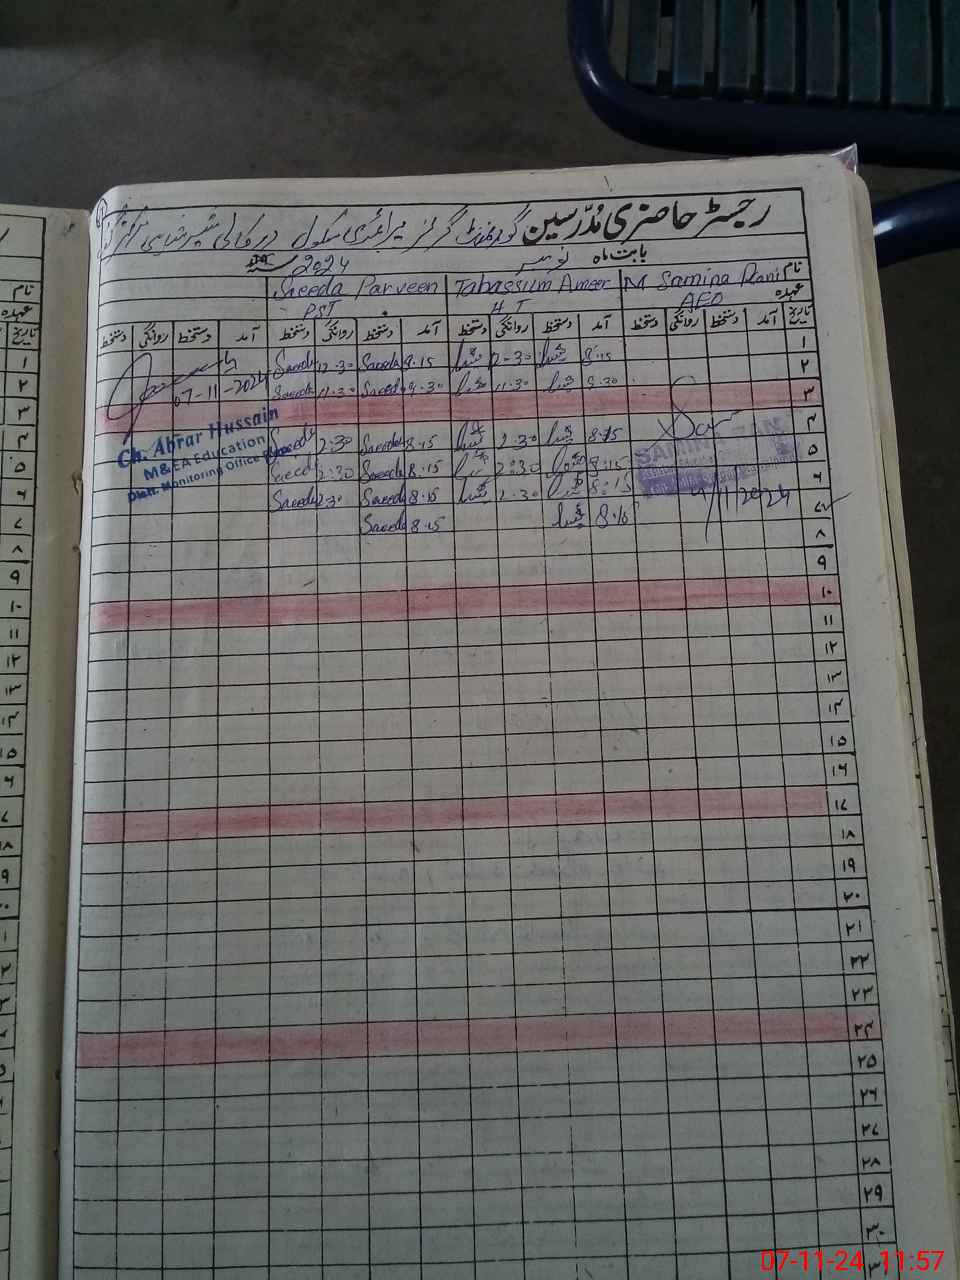 رجسٹر حاضری مُدرّسین گورنمنٹ گرلز پرائمری سکول
بابت ماہ نومبر سنہ 2024
نام M Samina Rani Tabassum Ameer Saeeda Parveen
عہدہ AEO HT PST
تاریخ آمد دستخط روانگی دستخط آمد دستخط روانگی دستخط آمد دستخط روانگی دستخط آمد دستخط روانگی دستخط
۱ 8:15 2-30 8.15 Saeeda 12.30 Saeeda
۲ 9.30 11.30 9.30 Saeeda 11.30 Saeeda
07-11-2024
۳
Ch. Abrar Hussain
M&EA Education
Distt. Monitoring Office
۴ 8:15 2.30 8.15 Saeeda 2:30 Saeeda
۵ 8:15 2:30 8.15 Saeeda 2:30 Saeeda
SAMINA RANI
۶ 8:15 2.30 8.15 Saeeda 2.30 Saeeda
۷ 8.15 8.15 Saeeda
۸
۹
۱۰
۱۱
۱۲
۱۳
۱۴
۱۵
۱۶
۱۷
۱۸
۱۹
۲۰
۲۱
۲۲
۲۳
۲۴
۲۵
۲۶
۲۷
۲۸
۲۹
۳۰
07-11-24 11:57